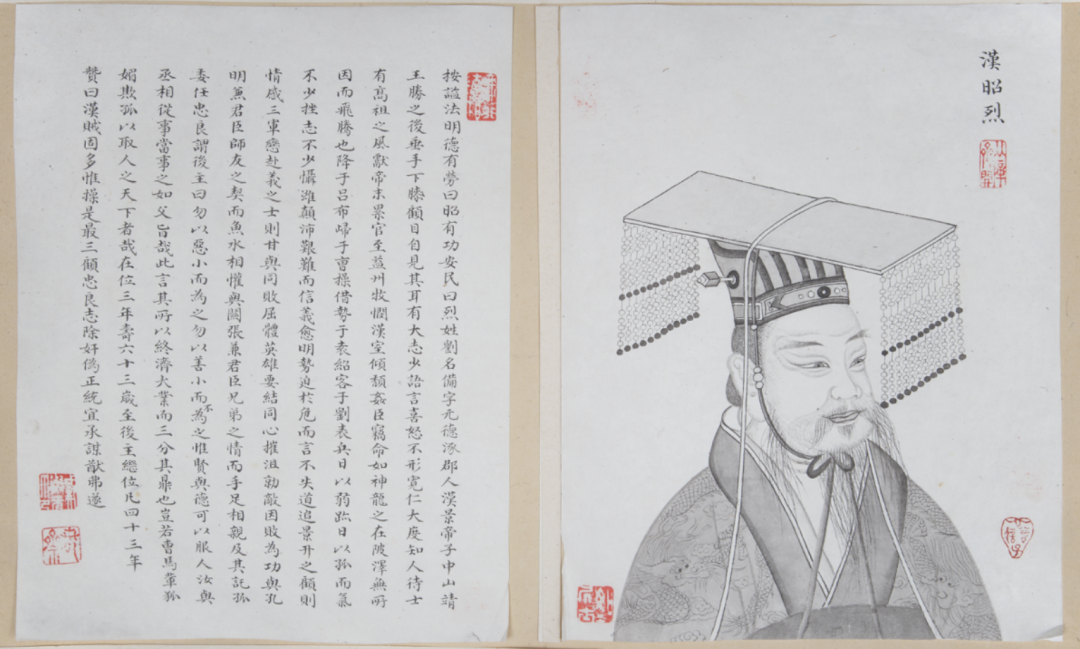 漢昭烈
按諡法明德有勞曰昭有功安民曰烈姓劉名備字元德涿郡人漢景帝子中山靖
王勝之後垂手下膝顧目自見其耳有大志少語言喜怒不形寬仁大度知人待士
有高祖之風獻帝末累官至益州牧憫漢室傾頹姦臣竊命如神龍之在陂澤無所
因而飛騰也降于呂布歸于曹操借勢于袁紹客于劉表兵日以弱跡日以孤而氣
不少挫志不少懾雖顛沛艱難而信義愈明勢迫於危而言不失道追景升之顧則
情感三軍戀赴義之士則甘與同敗屈體英雄要結同心摧沮勍敵因敗為功與孔
明兼君臣師友之契而魚水相懽與關張兼君臣兄弟之情而手足相親及其託孤
委任忠良謂後主曰勿以惡小而為之勿以善小而不為之惟賢與德可以服人汝與
丞相從事當事之如父旨哉此言其所以終濟大業而三分其鼎也豈若曹馬輩狐
媚欺孤以取人之天下者哉在位三年壽六十三歲至後主繼位凡四十三年
贊曰漢賊固多惟操是最三顧忠良志除奸偽正統宜承謀猷弗遂